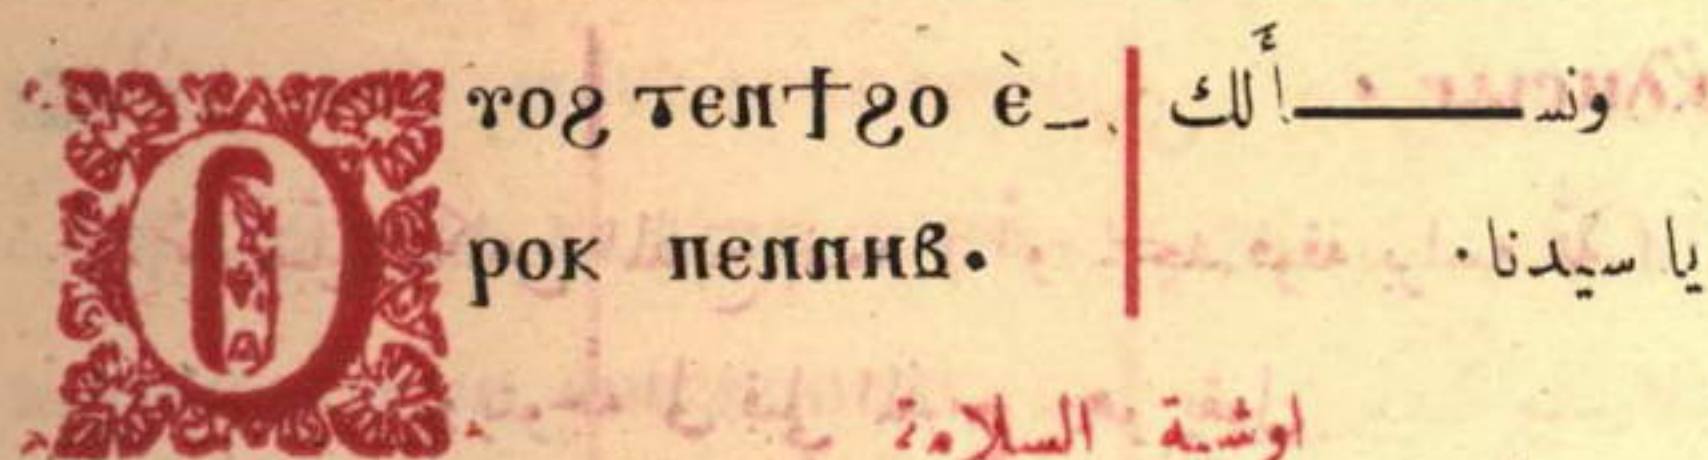 Ⲟⲩⲟϩ ⲧⲉⲛϯϩⲟ ⲉ̀-
ⲣⲟⲕ ⲡⲉⲛⲛⲏⲃ.
ونســـــأَلك
يا سيدنا.
اوشية السلامة